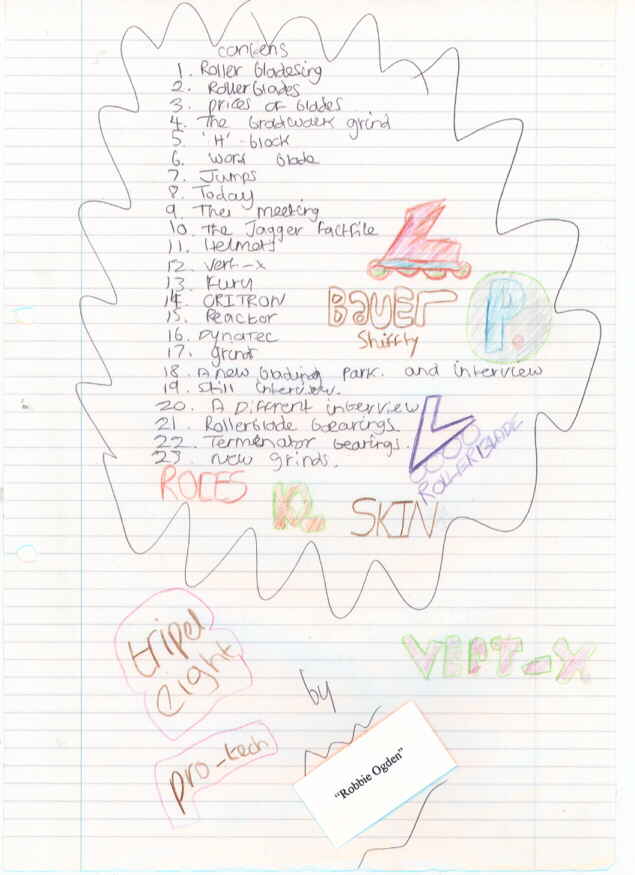 contens
1. Roller bladesing
2. Rollerblades
3. prices of blades
4. The brodwalk grind
5. 'H'-block
6. work blade
7. Jumps
8. Today
9. Ther meeting
10. The Jagger factfile
11. Helmets
12. vert-x
13. Fury
14. CRITRON
15. Reactor
16. Dynatec
17. grind
18. A new blading park. and interview
19. still interview.
20. A Diffrent interview
21. Rollerblade bearings.
22. Termenator bearings.
23. new grinds.
BaUer
Shiffty
P.
ROLLERBLADE
ROCES
SKIN
tripel
eight
VERT-X
by
pro-tech
"Robbie Ogden"